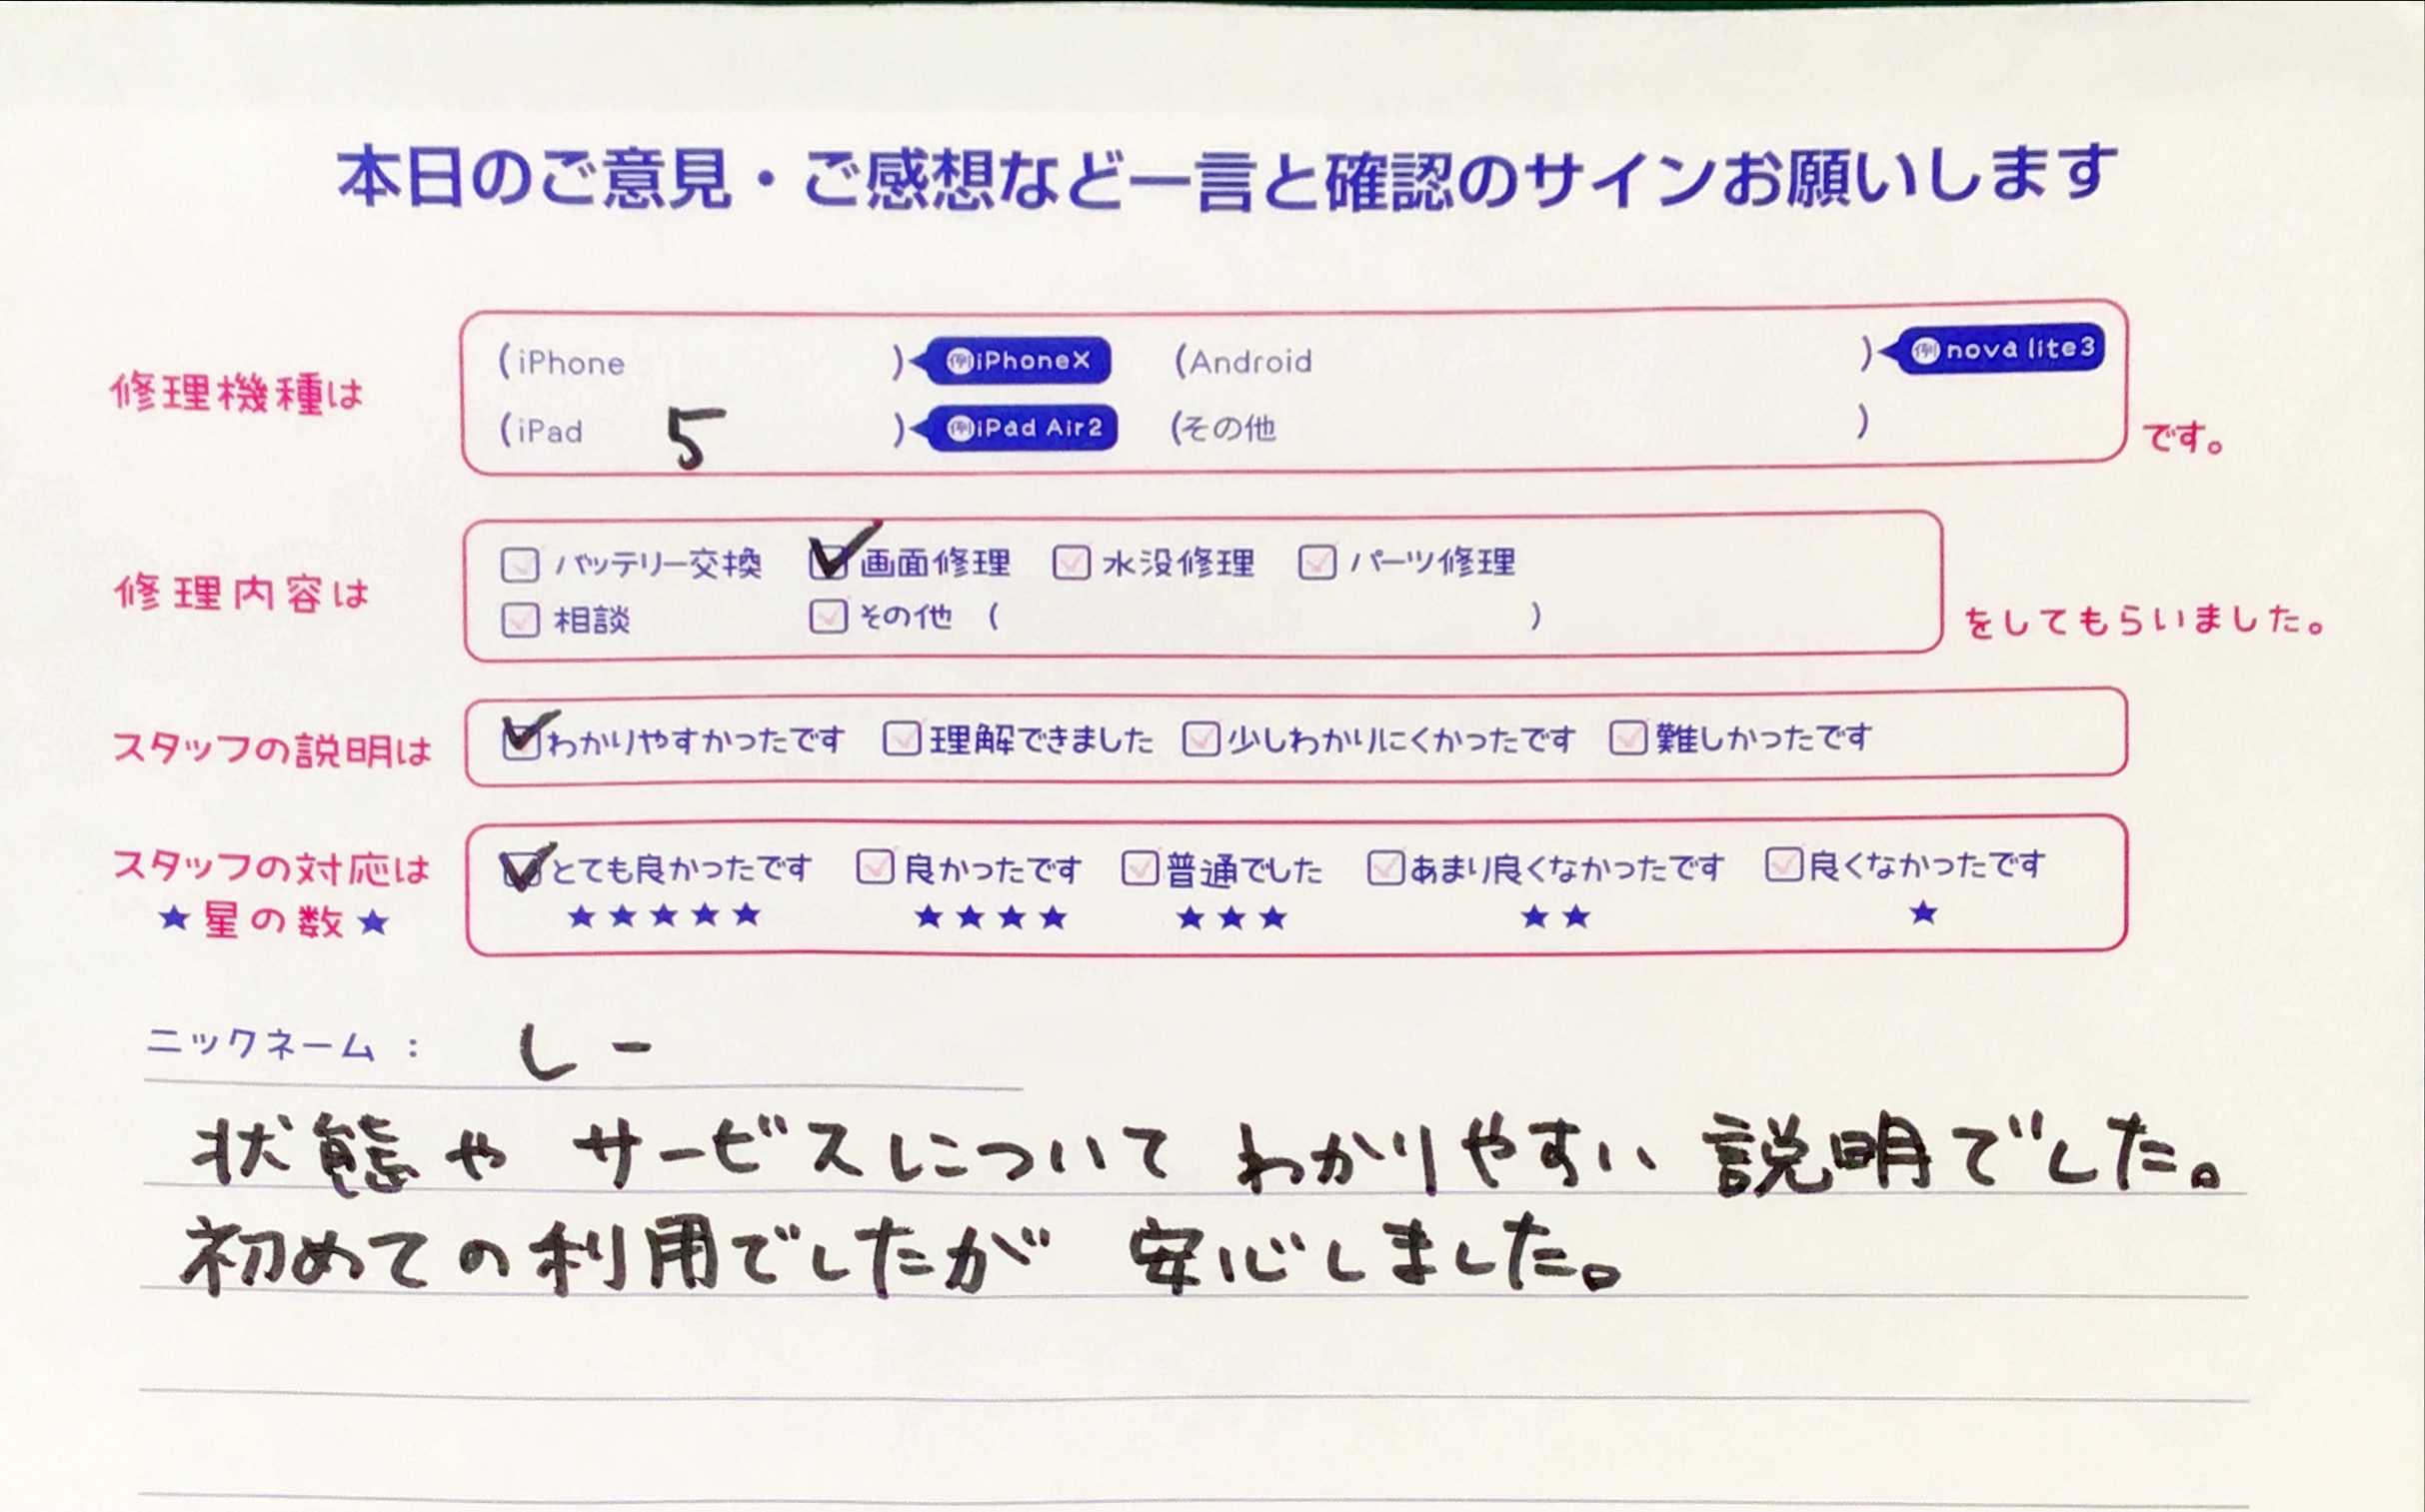 本日のご意見・ご感想など一言と確認のサインお願いします
修理機種は (iPhone ) 例iPhoneX (Android ) 例nova lite3
(iPad 5 ) 例iPad Air2 (その他 ) です。
修理内容は バッテリー交換 画面修理 水没修理 パーツ修理
相談 その他 ( ) をしてもらいました。
スタッフの説明は わかりやすかったです 理解できました 少しわかりにくかったです 難しかったです
スタッフの対応は とても良かったです 良かったです 普通でした あまり良くなかったです 良くなかったです
★星の数★ ★★★★★ ★★★★ ★★★ ★★ ★
ニックネーム : しー
状態や サービスについて わかりやすい 説明でした。
初めての利用でしたが 安心しました。